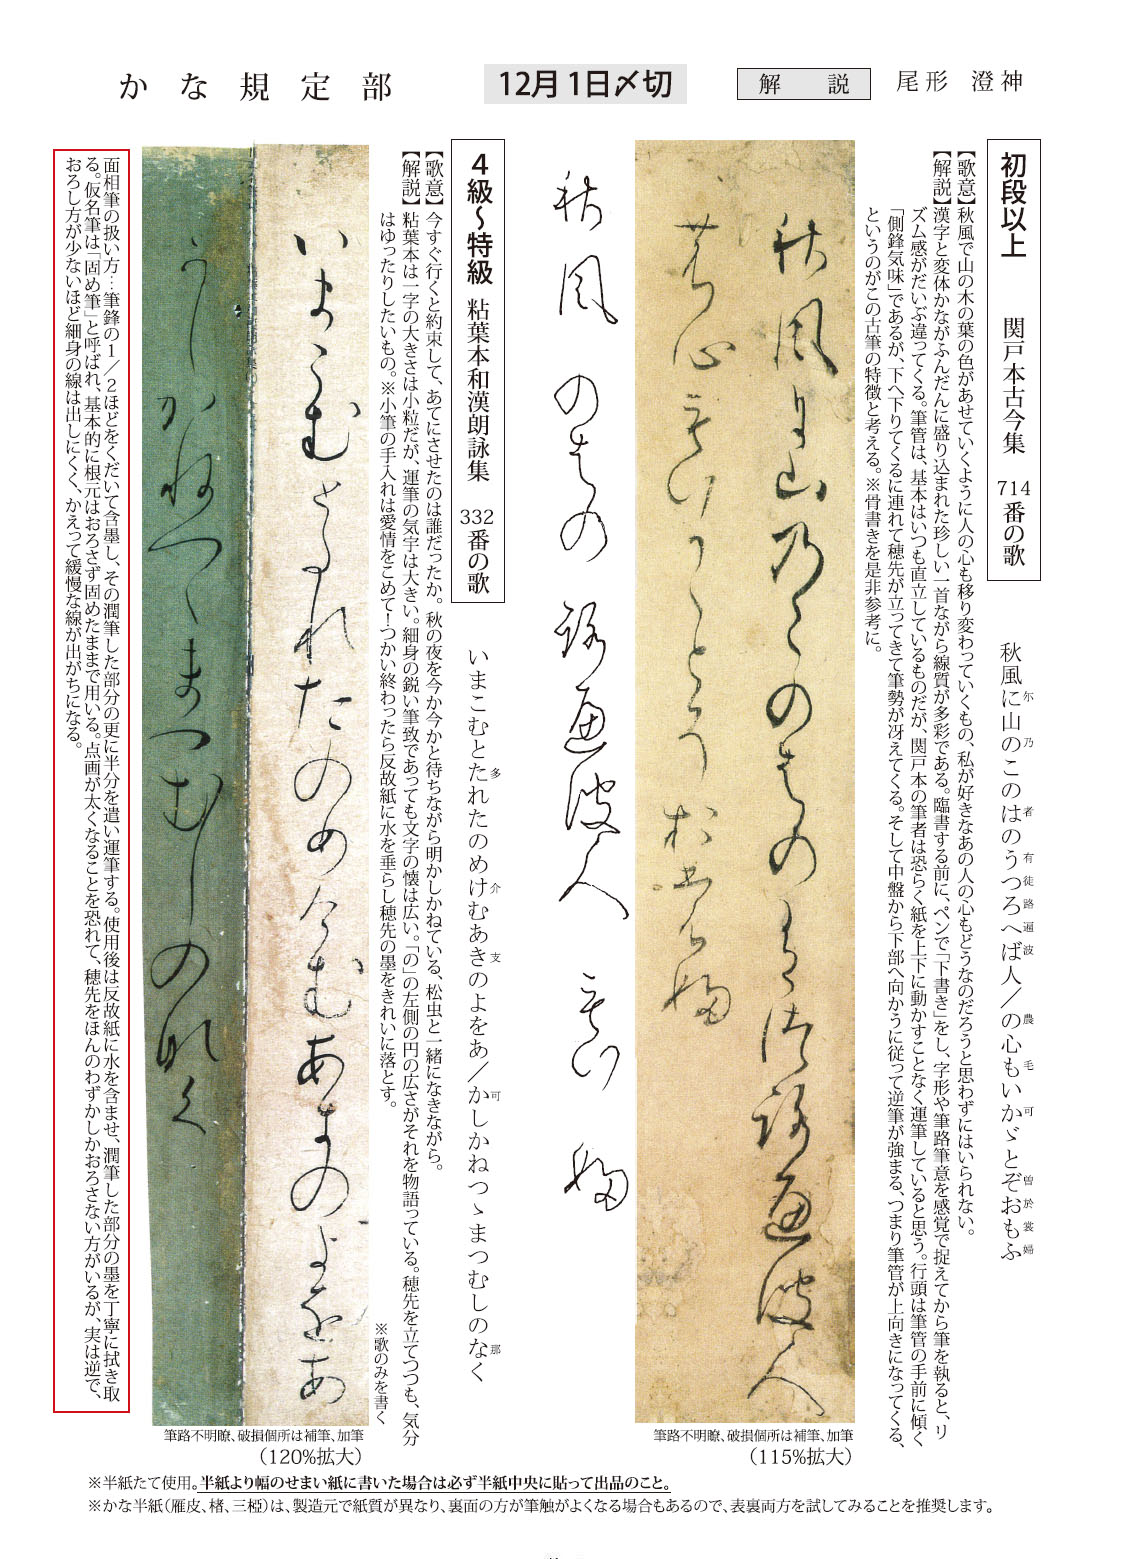 かな規定部
12月1日〆切
解説
尾形 澄神
初段以上 関戸本古今集 714番の歌
秋風に山のこのはのうつろへば人／の心もいかゞとぞおもふ
尓 乃 者 有 徒 路 遍 波 農 毛 可 曽 於 裳 婦
【歌意】秋風で山の木の葉の色があせていくように人の心も移り変わっていくもの、私が好きなあの人の心もどうなのだろうと思わずにはいられない。
【解説】漢字と変体かながふんだんに盛り込まれた珍しい一首ながら線質が多彩である。臨書する前に、ペンで「下書き」をし、字形や筆路筆意を感覚で捉えてから筆を執ると、リ
ズム感がだいぶ違ってくる。筆管は、基本はいつも直立しているものだが、関戸本の筆者は恐らく紙を上下に動かすことなく運筆していると思う。行頭は筆管の手前に傾く
「側鋒気味」であるが、下へ下りてくるに連れて穂先が立ってきて筆勢が冴えてくる。そして中盤から下部へ向かうに従って逆筆が強まる、つまり筆管が上向きになってくる、
というのがこの古筆の特徴と考える。※骨書きを是非参考に。
秋風尓山乃こ能者の有徒路遍波人
農心毛い可ゝとそ於裳婦
筆路不明瞭、破損個所は補筆、加筆
（115%拡大）
秋風 のはの 路遍波人 毛い 婦
4級〜特級 粘葉本和漢朗詠集 332番の歌
いまこむとたれたのめけむあきのよをあ／かしかねつゝまつむしのなく
多 介 支 可 那
【歌意】今すぐ行くと約束して、あてにさせたのは誰だったか。秋の夜を今か今かと待ちながら明かしかねている、松虫と一緒になきながら。
【解説】粘葉本は一字の大きさは小粒だが、運筆の気宇は大きい。細身の鋭い筆致であっても文字の懐は広い。「の」の左側の円の広さがそれを物語っている。穂先を立てつつも、気分
はゆったりしたいもの。※小筆の手入れは愛情をこめて！つかい終わったら反故紙に水を垂らし穂先の墨をきれいに落とす。
※歌のみを書く
いまこむとたれたのめ介むあ支のよをあ
かしかねつゝまつむしの那く
筆路不明瞭、破損個所は補筆、加筆
（120%拡大）
面相筆の扱い方…筆鋒の1／2ほどをくだいて含墨し、その潤筆した部分の更に半分を遣い運筆する。使用後は反故紙に水を含ませ、潤筆した部分の墨を丁寧に拭き取
る。仮名筆は「固め筆」と呼ばれ、基本的に根元はおろさず固めたままで用いる。点画が太くなることを恐れて、穂先をほんのわずかしかおろさない方がいるが、実は逆で、
おろし方が少ないほど細身の線は出しにくく、かえって緩慢な線が出がちになる。
※半紙たて使用。半紙より幅のせまい紙に書いた場合は必ず半紙中央に貼って出品のこと。
※かな半紙（雁皮、楮、三椏）は、製造元で紙質が異なり、裏面の方が筆触がよくなる場合もあるので、表裏両方を試してみることを推奨します。